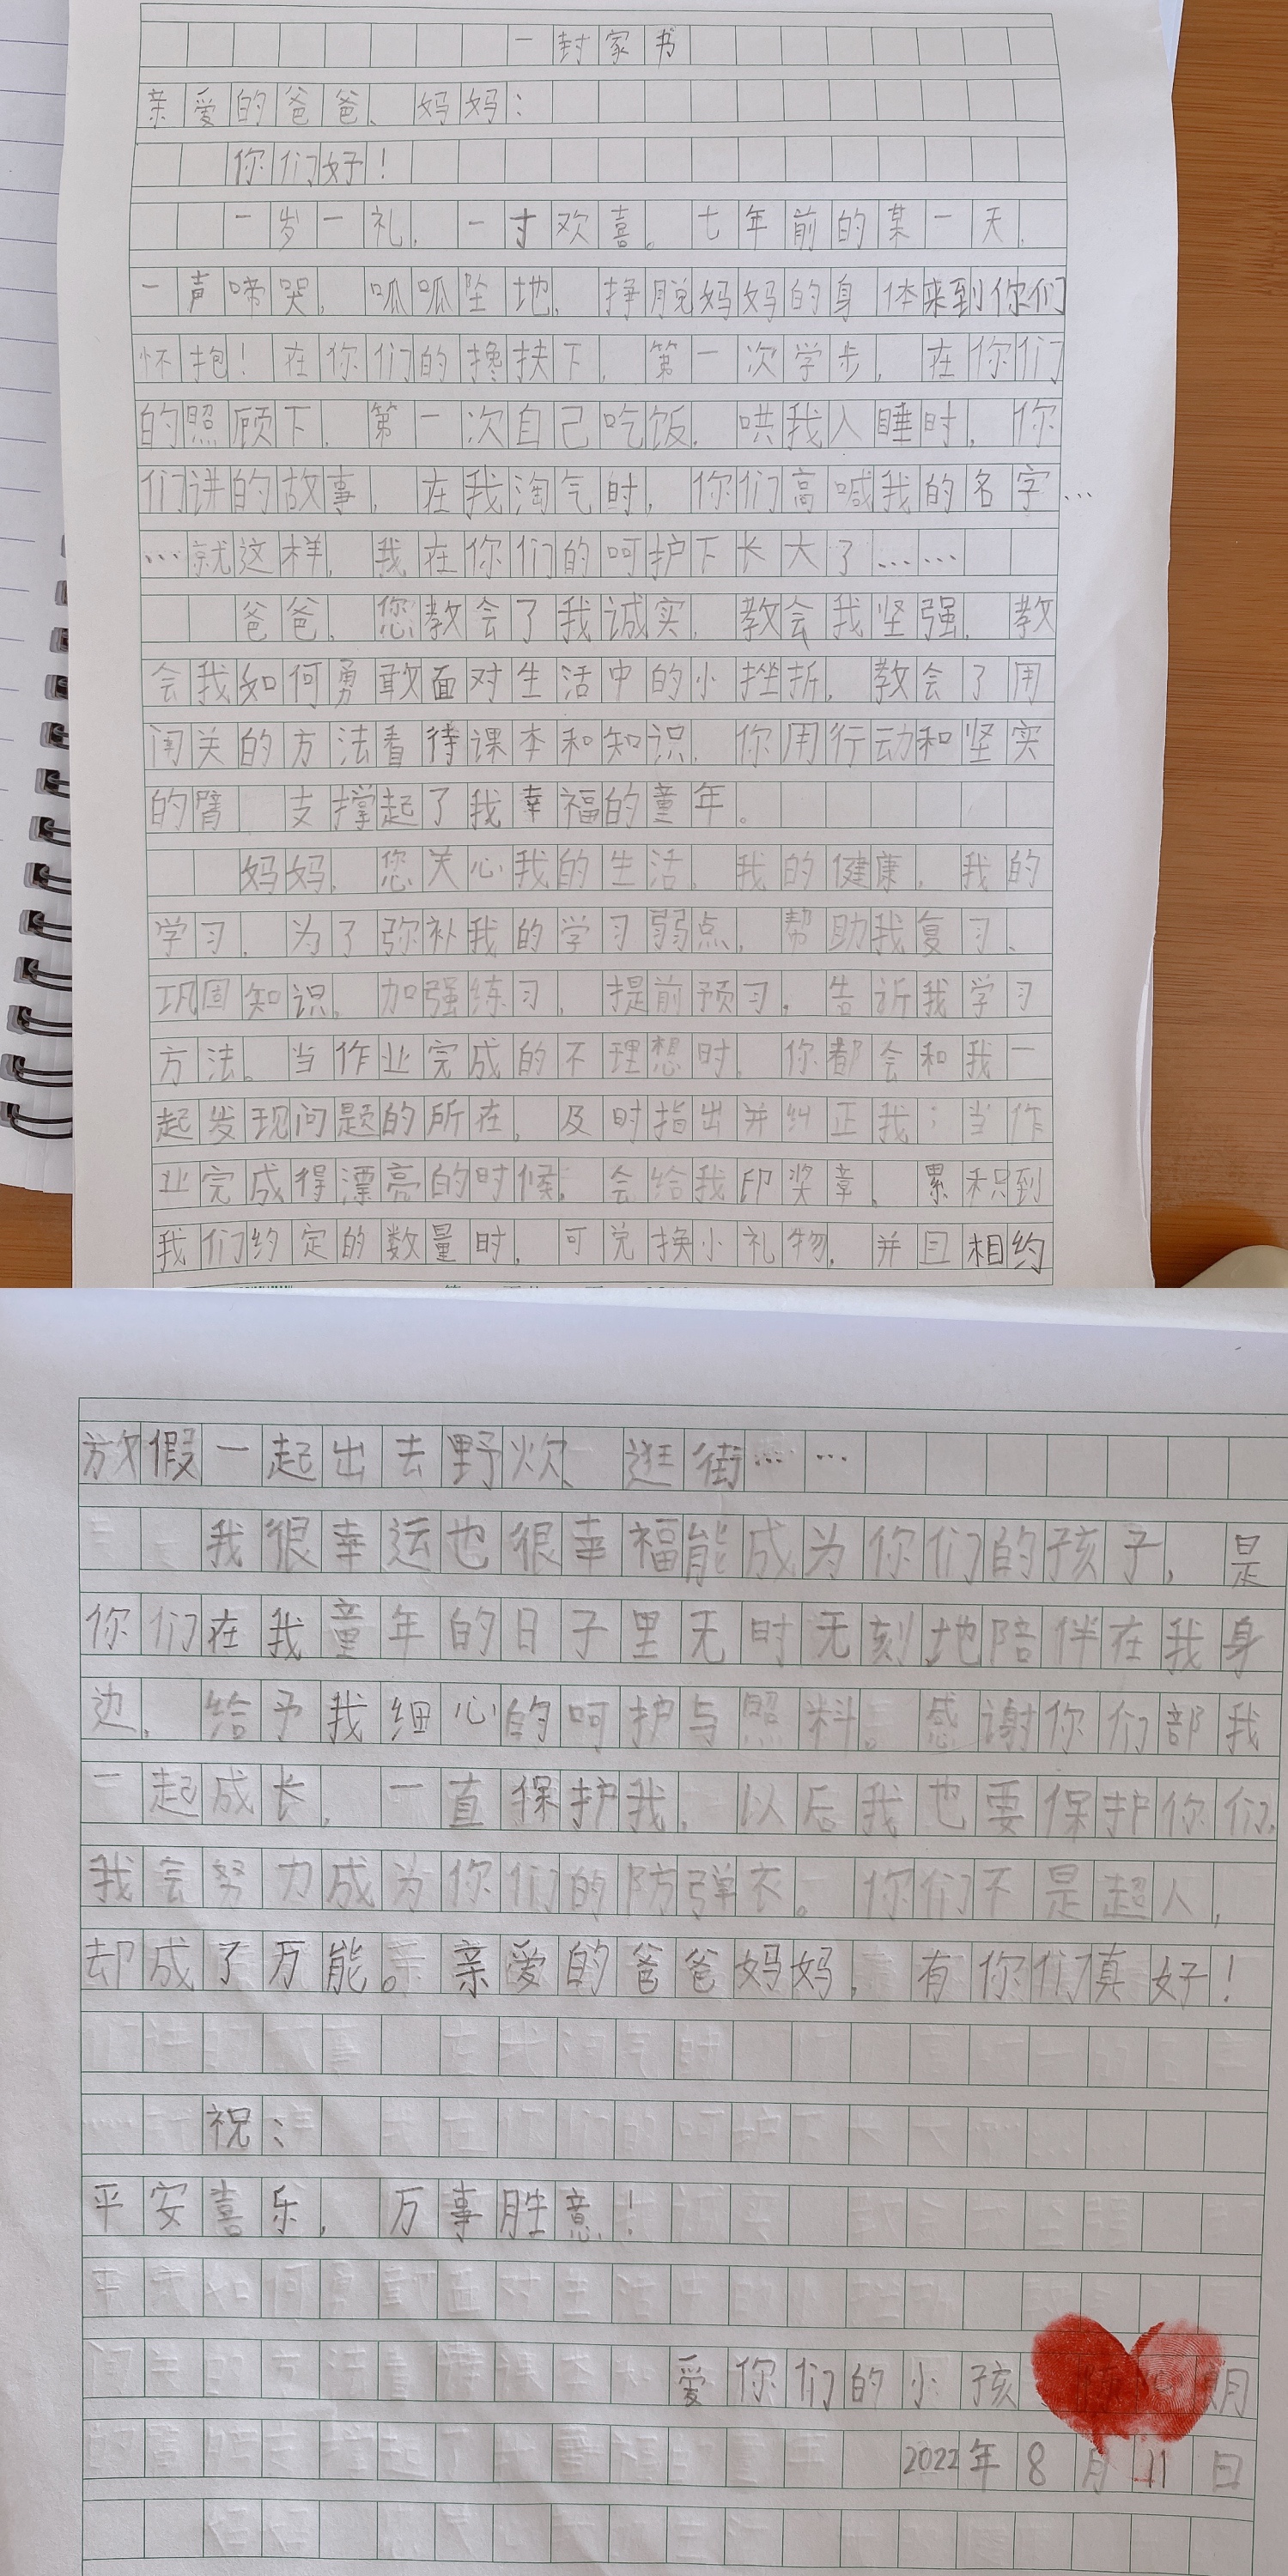 一封家书
亲爱的爸爸、妈妈：
你们好！
一岁一礼，一寸欢喜。七年前的某一天，
一声啼哭，呱呱坠地，挣脱妈妈的身体来到你们
怀抱！在你们的搀扶下，第一次学步，在你们
的照顾下，第一次自己吃饭，哄我入睡时，你
们讲的故事，在我淘气时，你们高喊我的名字…
…就这样，我在你们的呵护下长大了……
爸爸，您教会了我诚实，教会我坚强，教
会我如何勇敢面对生活中的小挫折，教会了用
闯关的方法看待课本和知识，你用行动和坚实
的臂 支撑起了我幸福的童年。
妈妈，您关心我的生活，我的健康，我的
学习，为了弥补我的学习弱点，帮助我复习、
巩固知识，加强练习，提前预习，告诉我学习
方法。当作业完成的不理想时，你都会和我一
起发现问题的所在，及时指出并纠正我；当作
业完成得漂亮的时候，会给我印奖章，累积到
我们约定的数量时，可兑换小礼物，并且相约
放假一起出去野炊、逛街……
我很幸运也很幸福能成为你们的孩子，是
你们在我童年的日子里无时无刻地陪伴在我身
边，给予我细心的呵护与照料。感谢你们部我
一起成长，一直保护我，以后我也要保护你们，
我会努力成为你们的防弹衣。你们不是超人，
却成了万能。亲爱的爸爸妈妈，有你们真好！
祝：
平安喜乐，万事胜意！
爱你们的小孩
2022年8月11日